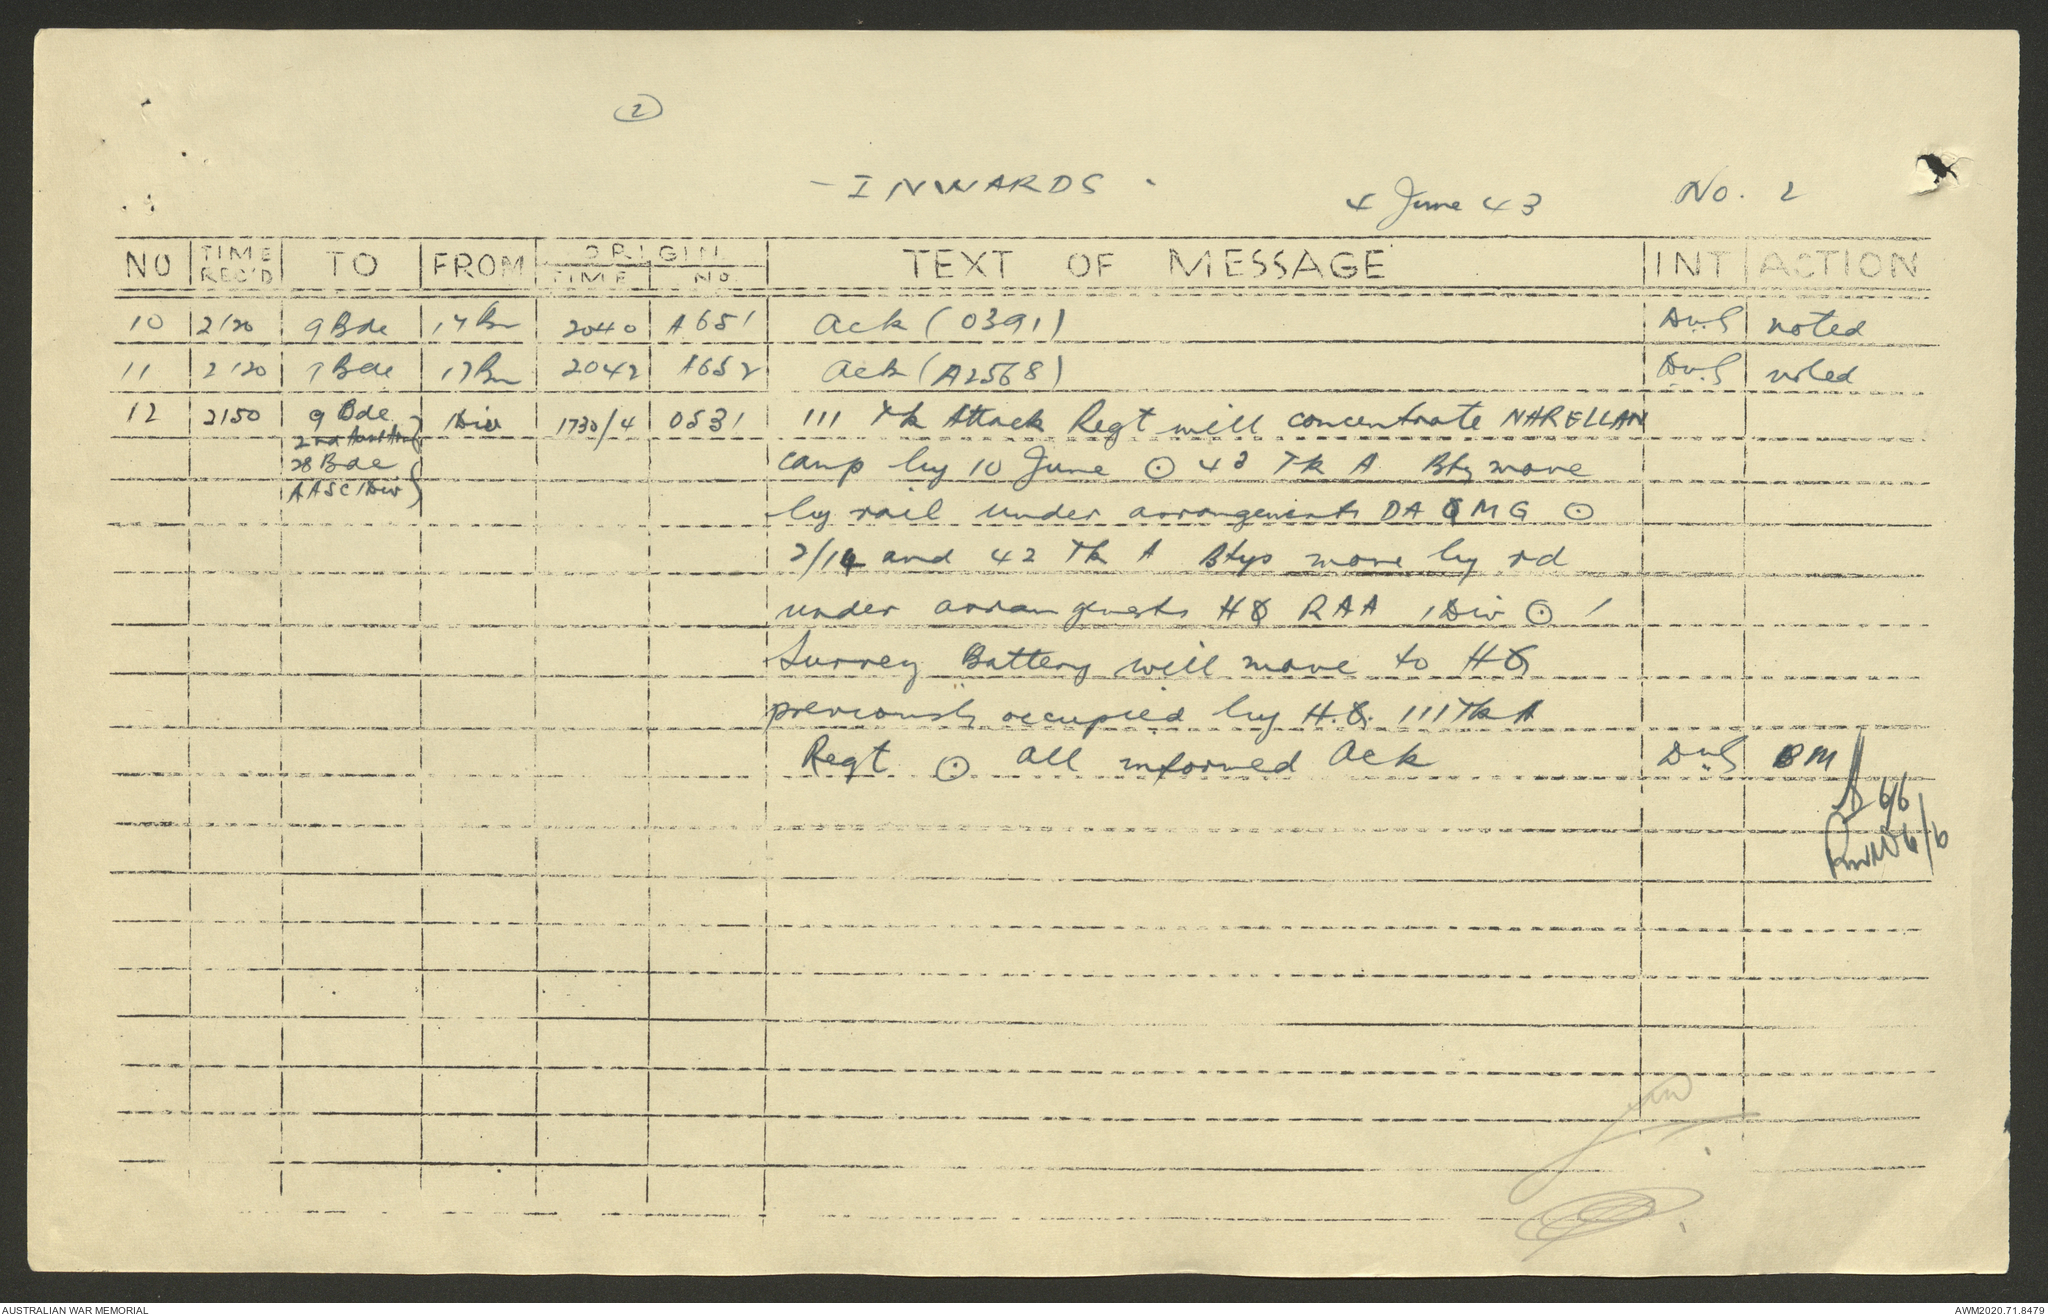 2
- INWARDS -
4 June 43
No. 2
NO TIME REC'D TO FROM ORIGIN TIME No. TEXT OF MESSAGE INT ACTION
10 2120 9 Bde 17 Bn 2040 A651 Ack (0391) noted
11 2120 9 Bde 17 Bn 2042 A652 Ack (A2568) noted
12 2150 9 Bde 1 Div 1730/4 0531 111 Tk Attack Regt will concentrate NARELLAN
28 Bde camp by 10 June ⊙ 43 Tk A Bty move
AASC 1 Div
by rail under arrangements DAQMG ⊙
2/14 and 42 Tk A Btys move by rd
under arrangements HQ RAA 1 Div ⊙ 1
Survey Battery will move to HQ
previously occupied by H.Q. 111 Tk A
Regt ⊙ All informed Ack BM
6/6
6/6
AUSTRALIAN WAR MEMORIAL
AWM2020.71.8479